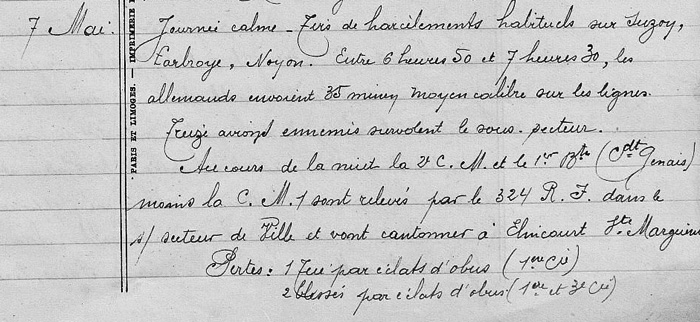 7 Mai: Journée calme - Tirs de harcèlements habituels sur Suzoy,
Larbroye, Noyon. Entre 6 heures 50 et 7 heures 30, les
allemands envoient 35 minen moyen calibre sur les lignes.
Treize avions ennemis survolent le sous-secteur.
Au cours de la nuit la 2e C. M. et le 1er Bton (Cdt Genais)
moins la C. M. 1 sont relevés par le 324 R. I. dans le
s/ secteur de Ville et vont cantonner à Elincourt Ste Marguerite
Pertes: 1 Tué par éclats d'obus (1ère Cie)
2 blessés par éclats d'obus (1ère et 3e Cie)
PARIS ET LIMOGES. — IMPRIMERIE